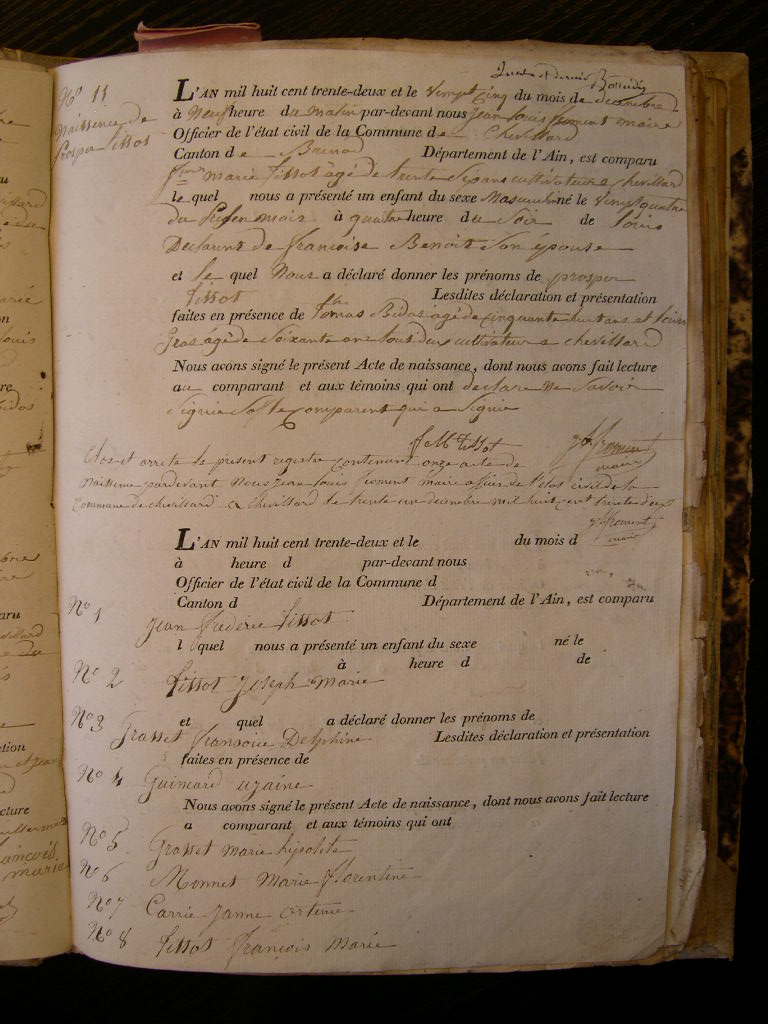 N° 11
Naissence de
Prosper Tissot
L'AN mil huit cent trente-deux et le Vingt Cinq du mois de decembre
à Neuf heure du matin par-devant nous Jean Louis froment maire
Officier de l'état civil de la Commune de Chevillard
Canton de Brenod Département de l'Ain, est comparu
marie Tissot âgé de trente Sixans cultivateur a chevillard
le quel nous a présenté un enfant du sexe Masculin né le Vingt quatre
du Presen mois à quatre heure du Soir de Louis
Declarent de françoise Benoit Son épouse
et le quel Nous a déclaré donner les prénoms de prosper
Tissot Lesdites déclaration et présentation
faites en présence de Tomas Bidos agé de cinquante huit ans et Louis
Gras agé de Soixante ans tous deux cultivateur a chevillard
Nous avons signé le présent Acte de naissance, dont nous avons fait lecture
au comparant et aux témoins qui ont declare Ne Savoir
Signié Comparent qui a Signié
f M Tissot JL froment
maire
Clos et arrete le present registre contenant onze acte de
Naissence pardevant Nous Jean Louis froment maire officier de l'état civil de la
Commune de chevillard a chevillard le trente un decembre mil huit cent trente deux
JL froment
maire
L'AN mil huit cent trente-deux et le du mois d
à heure d par-devant nous
Officier de l'état civil de la Commune d
Canton d Département de l'Ain, est comparu
N° 1 Jean frederic Tissot
l quel nous a présenté un enfant du sexe né le
à heure d de
N° 2 Tissot Joseph Marie
et quel a déclaré donner les prénoms de
N° 3 Grasset fransoise Delphine Lesdites déclaration et présentation
faites en présence de
N° 4 Guimard ugaine
Nous avons signé le présent Acte de naissance, dont nous avons fait lecture
a comparant et aux témoins qui ont
N° 5 Grasset marie hipolite
N° 6 Monnet Marie florentine
N° 7 Carrie Janne ortence
N° 8 Tissot françois Marie